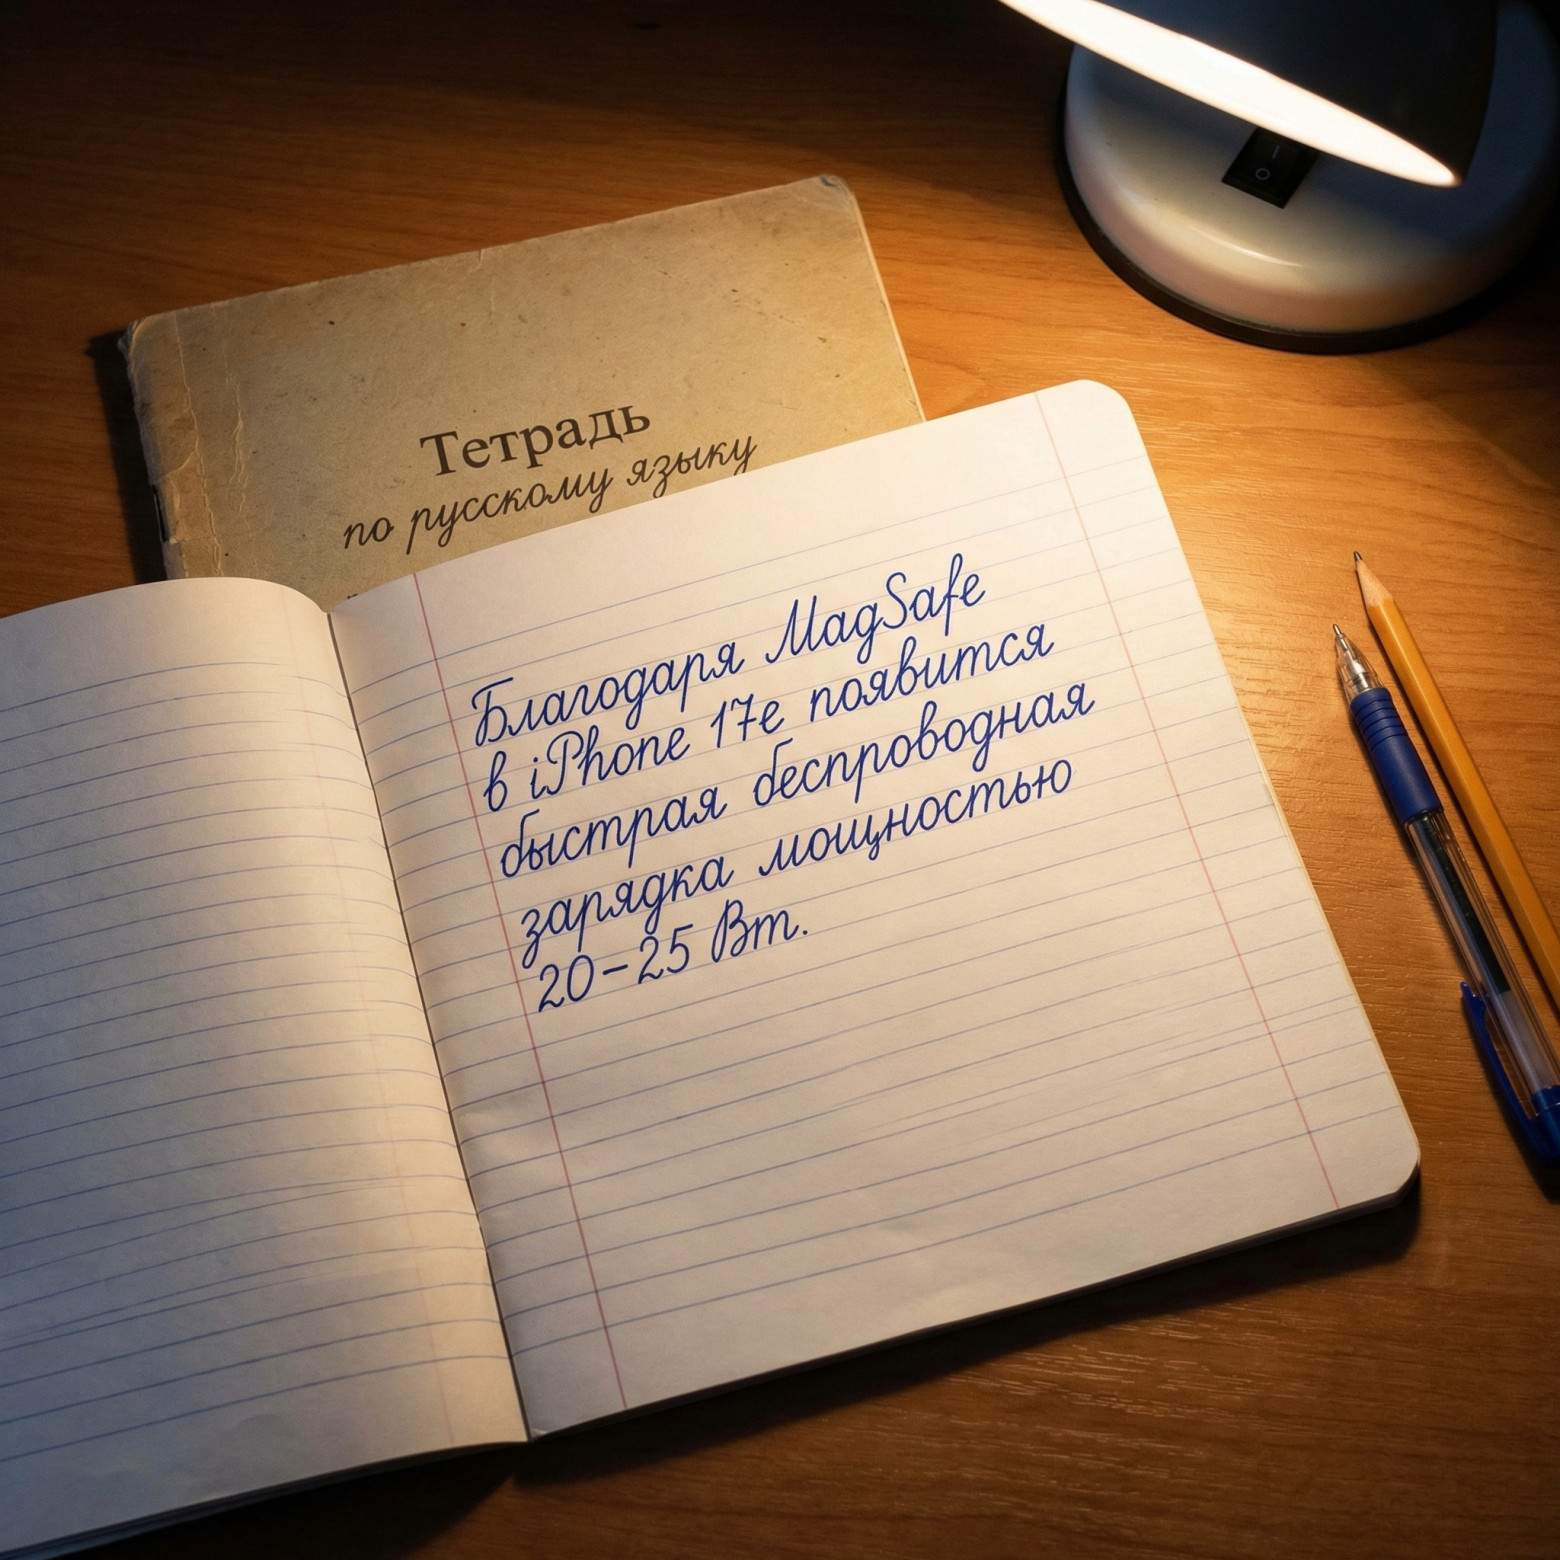 Тетрадь
по русскому языку
Благодаря MagSafe
в iPhone 17e появится
быстрая беспроводная
зарядка мощностью
20–25 Вт.